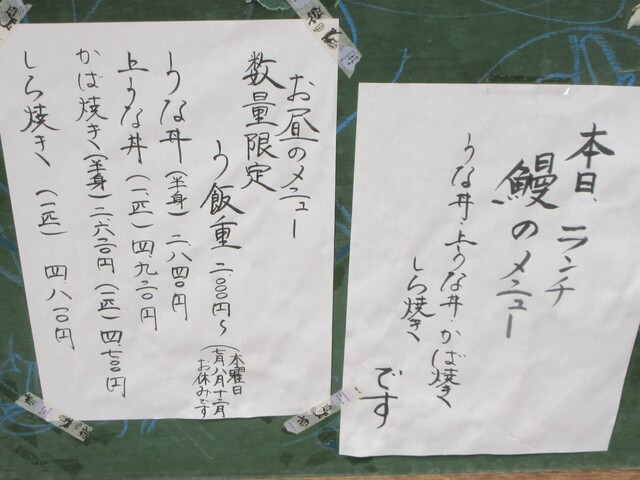 本日、ランチ
鰻のメニュー
うな丼・上うな丼・かば焼き
しら焼き
です
お昼のメニュー
数量限定
う飯重 二.〇〇〇円〜
(木曜日
七月八月十二月
お休みです)
うな丼(半身)二.八四〇円
上うな丼(一匹)四.九二〇円
かば焼き(半身)二.六二〇円(一匹)四.七〇〇円
しら焼き(一匹)四.八一〇円